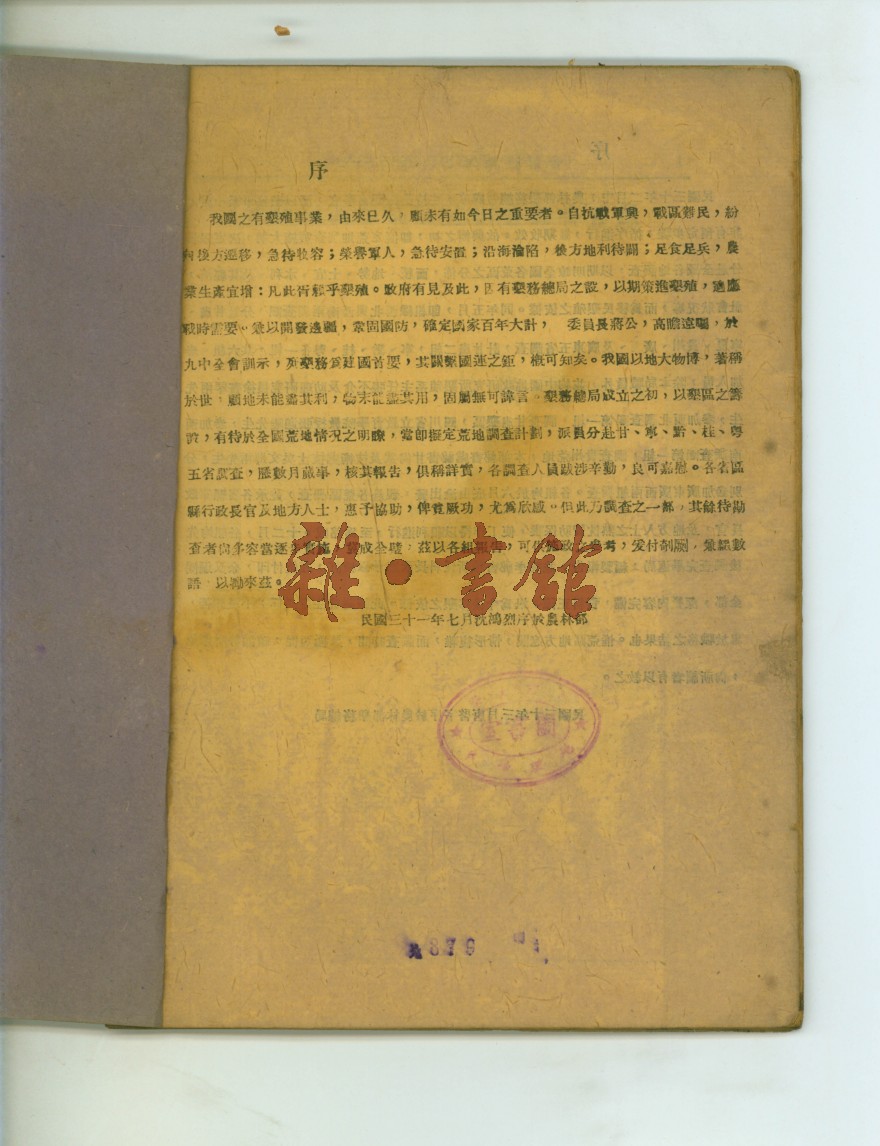 序
我國之有墾殖事業，由來已久，顧未有如今日之重要者。自抗戰軍興，戰區難民，紛
向後方遷移，急待收容；榮譽軍人，急待安置；沿海淪陷，後方地利待闢；足食足兵，農
業生產宜增：凡此皆繫乎墾殖。政府有見及此，因有墾務總局之設，以期策進墾殖，適應
戰時需要。兼以開發邊疆，鞏固國防，確定國家百年大計， 委員長蔣公，高瞻遠矚，於
九中全會訓示，以墾務為建國首要，其關繫國運之鉅，概可知矣。我國以地大物博，著稱
於世，顧地未能盡其利，物未能盡其用，固屬無可諱言。墾務總局成立之初，以墾區之籌
設，有待於全國荒地情況之明瞭，當即擬定荒地調查計劃，派員分赴甘、寧、黔、桂、粵
五省調查，歷數月蕆事，核其報告，俱稱詳實，各調查人員跋涉辛勤，良可嘉慰。各省區
縣行政長官及地方人士，惠予協助，俾竟厥功，尤為欣感。但此乃調查之一部，其餘待勘
查者尚多容當逐 成全 茲以各組報告，可供 參考，爰付剞劂，兼綴數
語，以勵來茲。
民國三十一年七月沈鴻烈序於農林部
雜·書館
圖書室
879